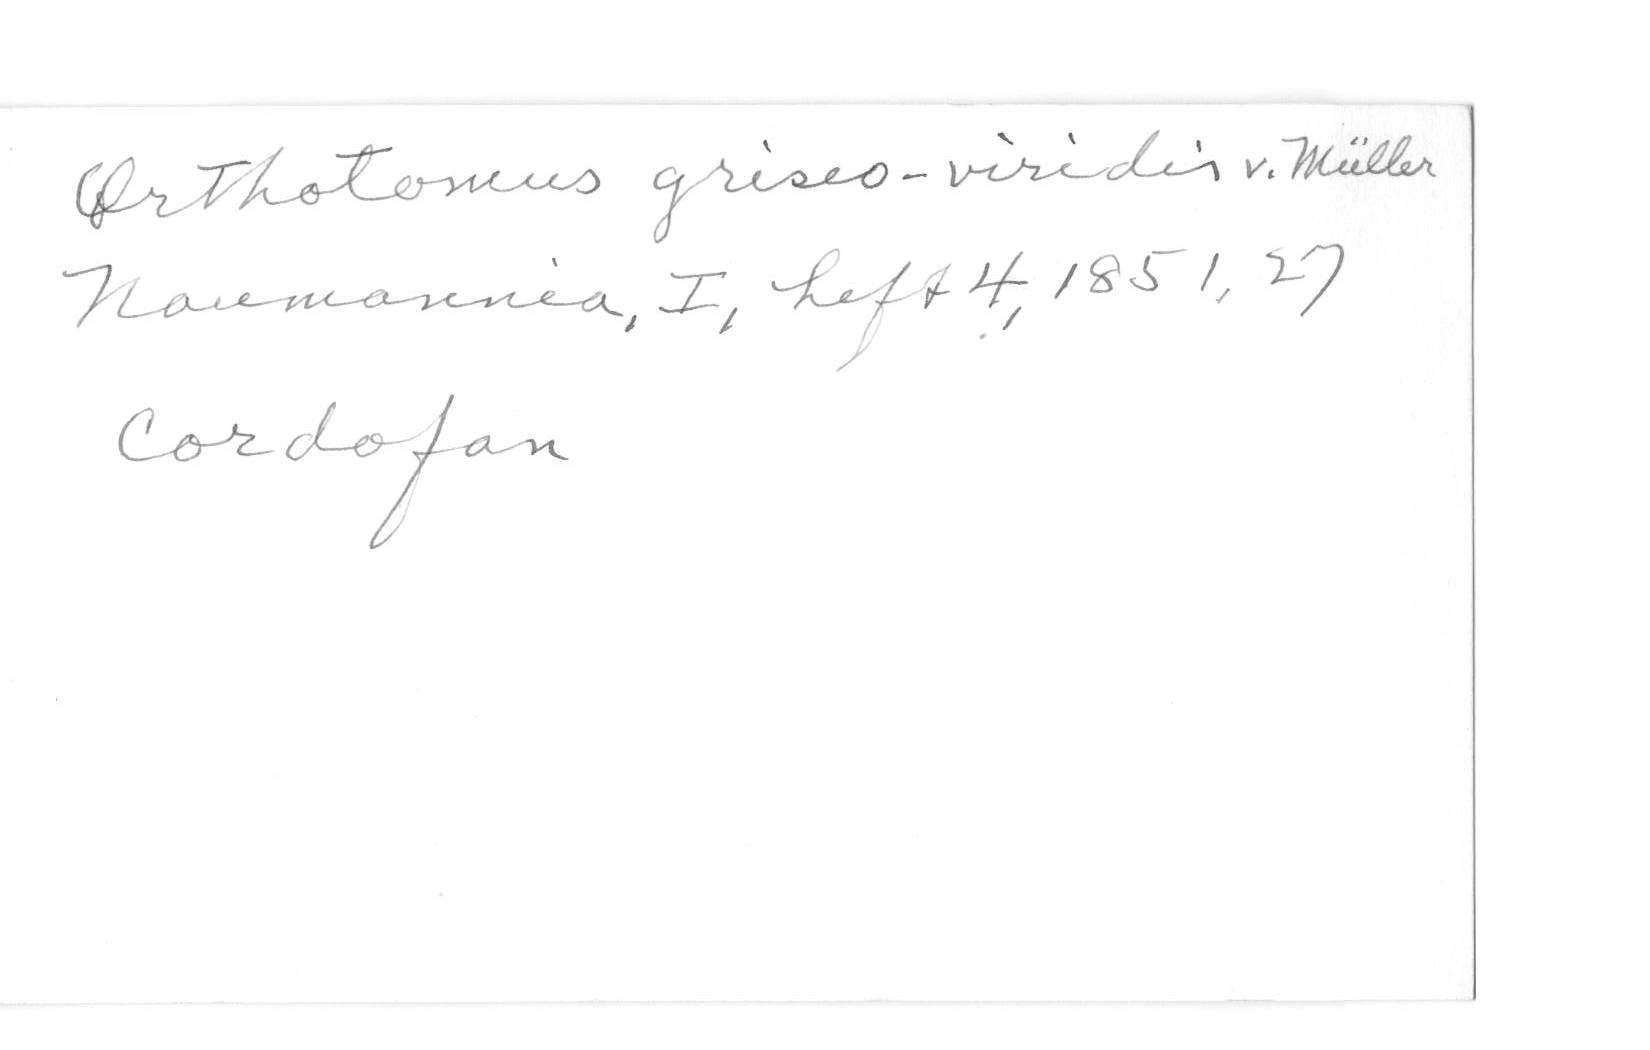 Orthotomus griseo-viridis v. Müller
Naumannia, I, heft 4, 1851, 27
Cordofan